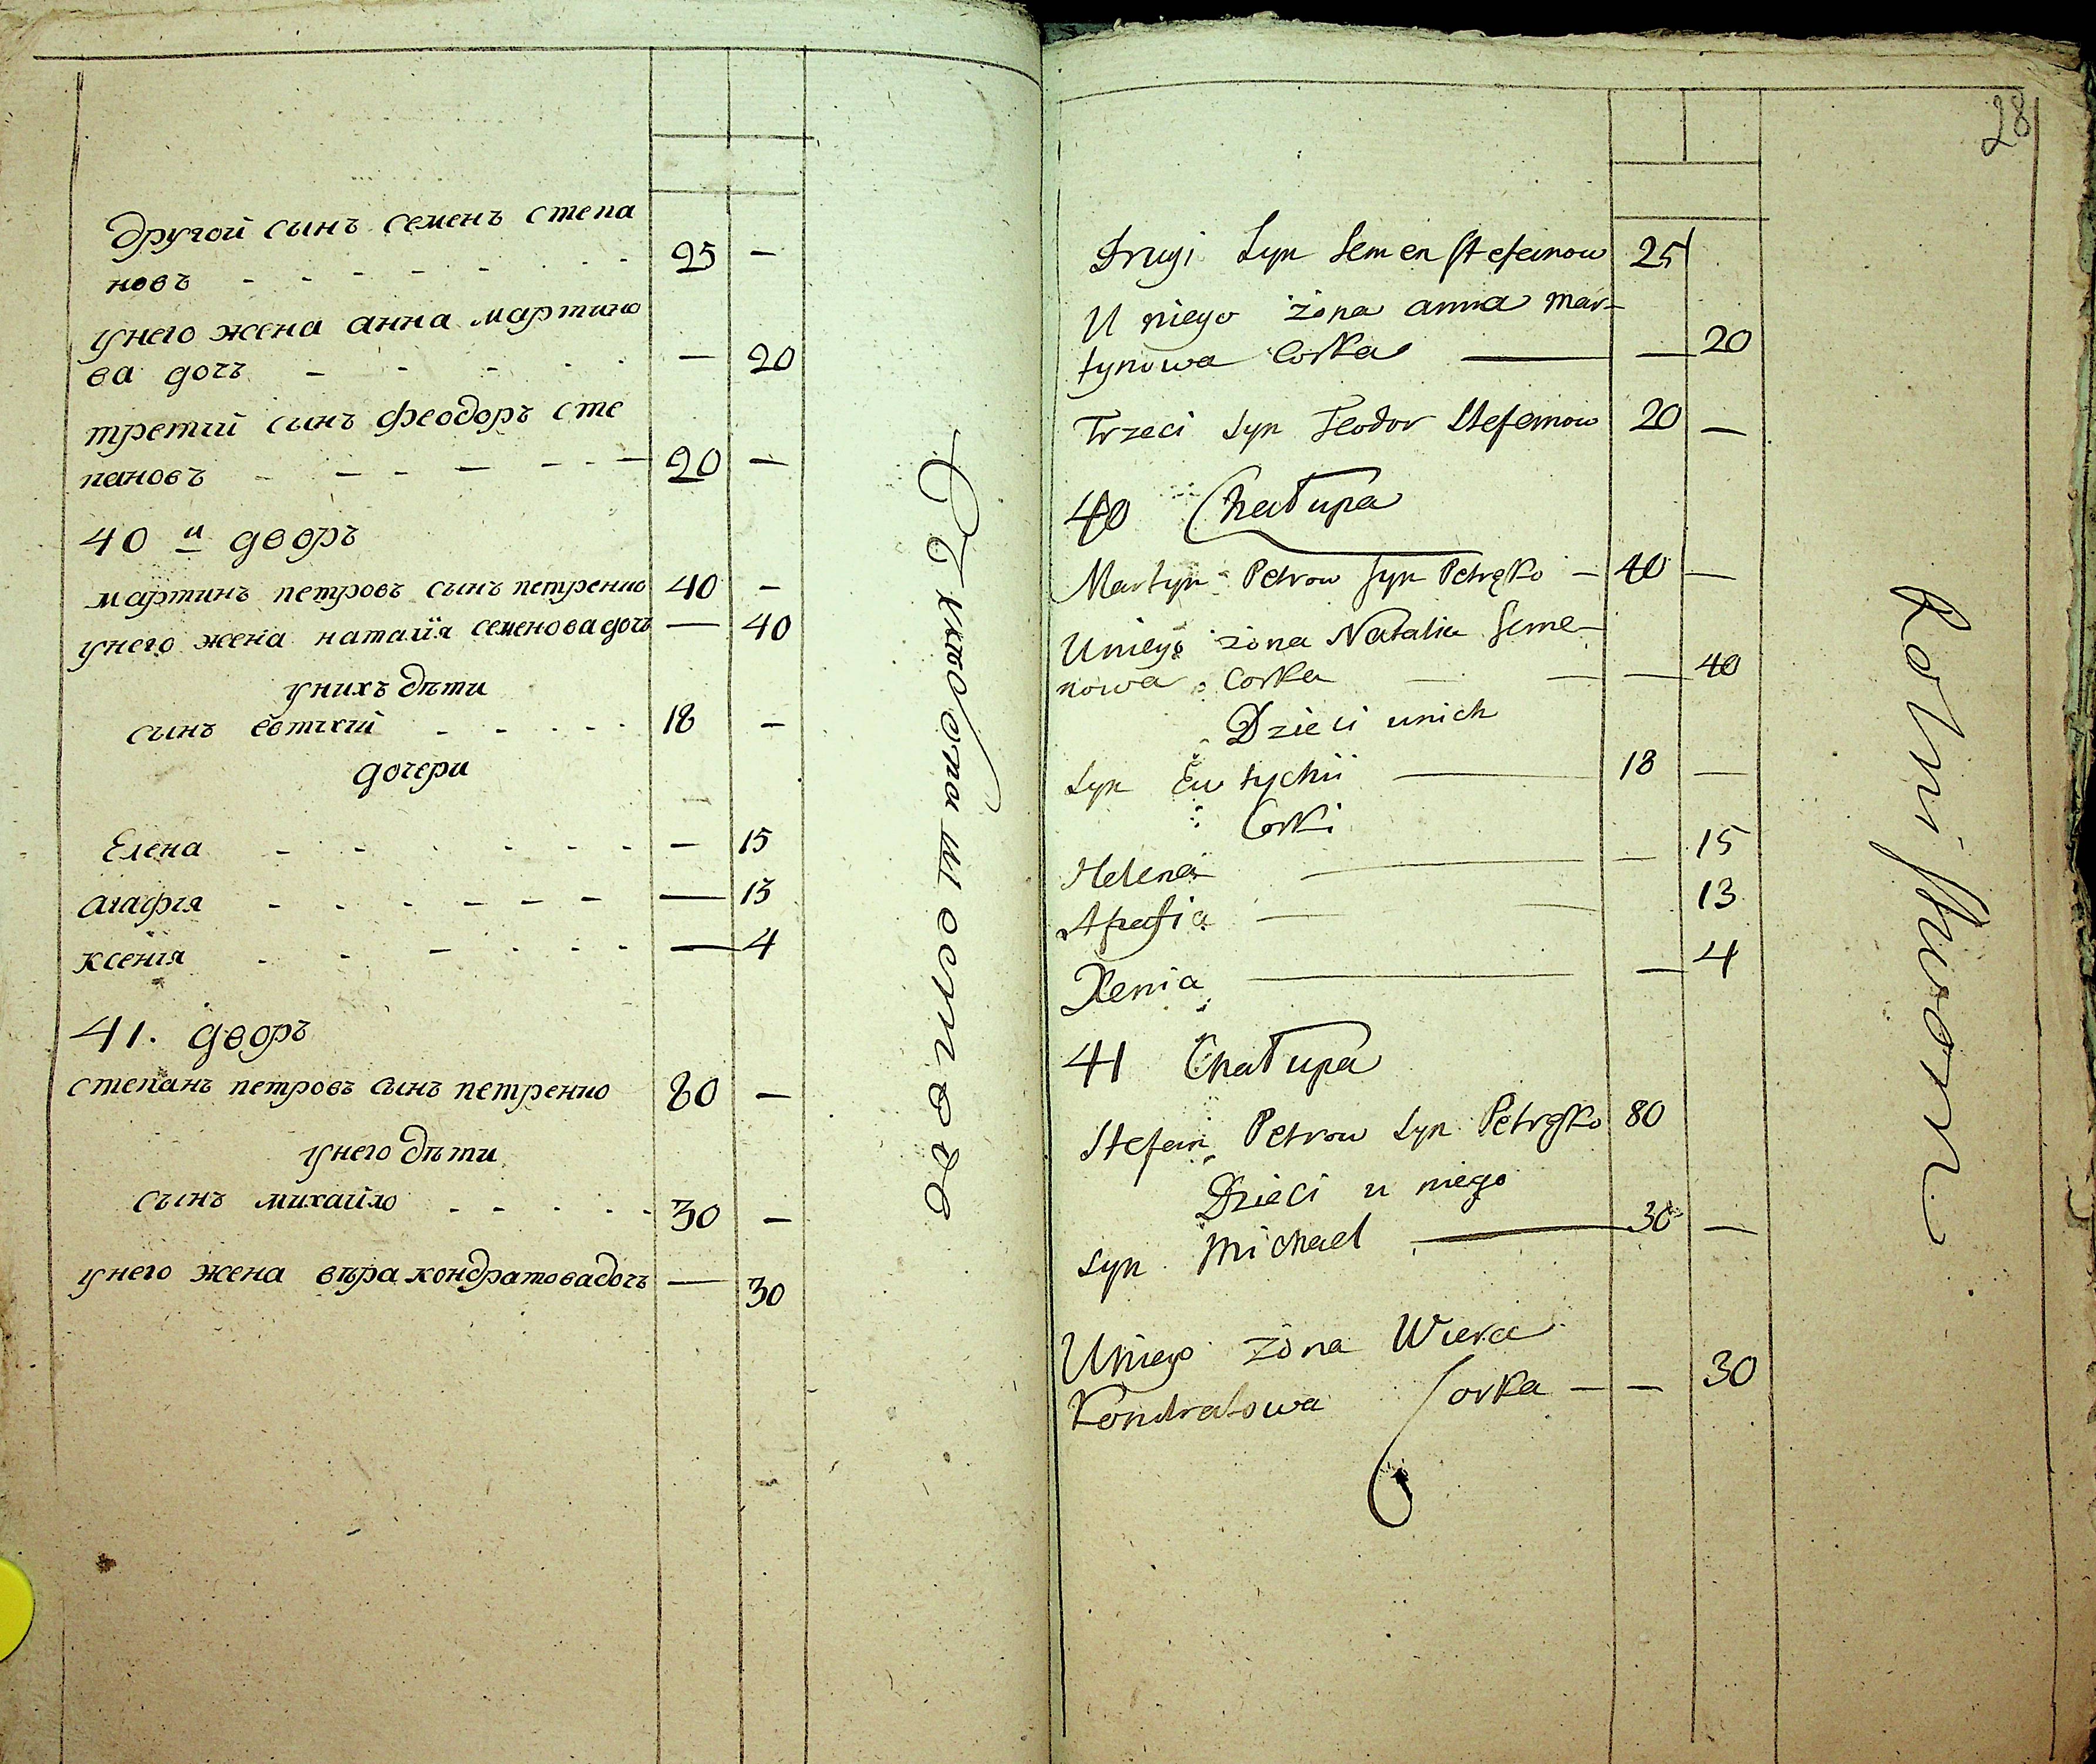 другой сынъ семенъ степа
новъ - - - - - - - 25 -
унего жена анна мартино
ва дочъ - - - - - — 20
третий сынъ феодоръ сте
пановъ - - - - - - - 20 —
40 й дворъ
мартинъ петровъ сынъ петренко 40 -
унего жена наталїя семеновадочъ — 40
унихъ дѣти
сынъ евтихій - - - - - 18 -
дочери
Елена - - - - - - - — 15
агафія - - - - - - — 13
ксенія - - - - - - — 4
41. дворъ
степанъ петровъ сынъ петренко 80 —
унего дѣти
сынъ михайло - - - - - 30 —
унего жена вѣра кондратовадочъ — 30
28
Drugi Syn Semen Stefanow 25
U niego żona anna Mar-
tynowa Corka — — 20
Trzeci Syn Teodor Stefanow 20 —
40 Chałupa
Martyn Petrow Syn Petręko — 40 —
Uniego żona Natalia Seme-
nowa Corka — — — 40
Dzieci unich
Syn Eutychii — 18 —
Corki
Helena — — 15
Agafia — — 13
Xenia — — 4
41 Chałupa
Stefan Petrow Syn Petręko 80
Dzieci u niego
Syn Michael — 30 —
Uniego żona Wiera
Kondratowa Corka — — 30